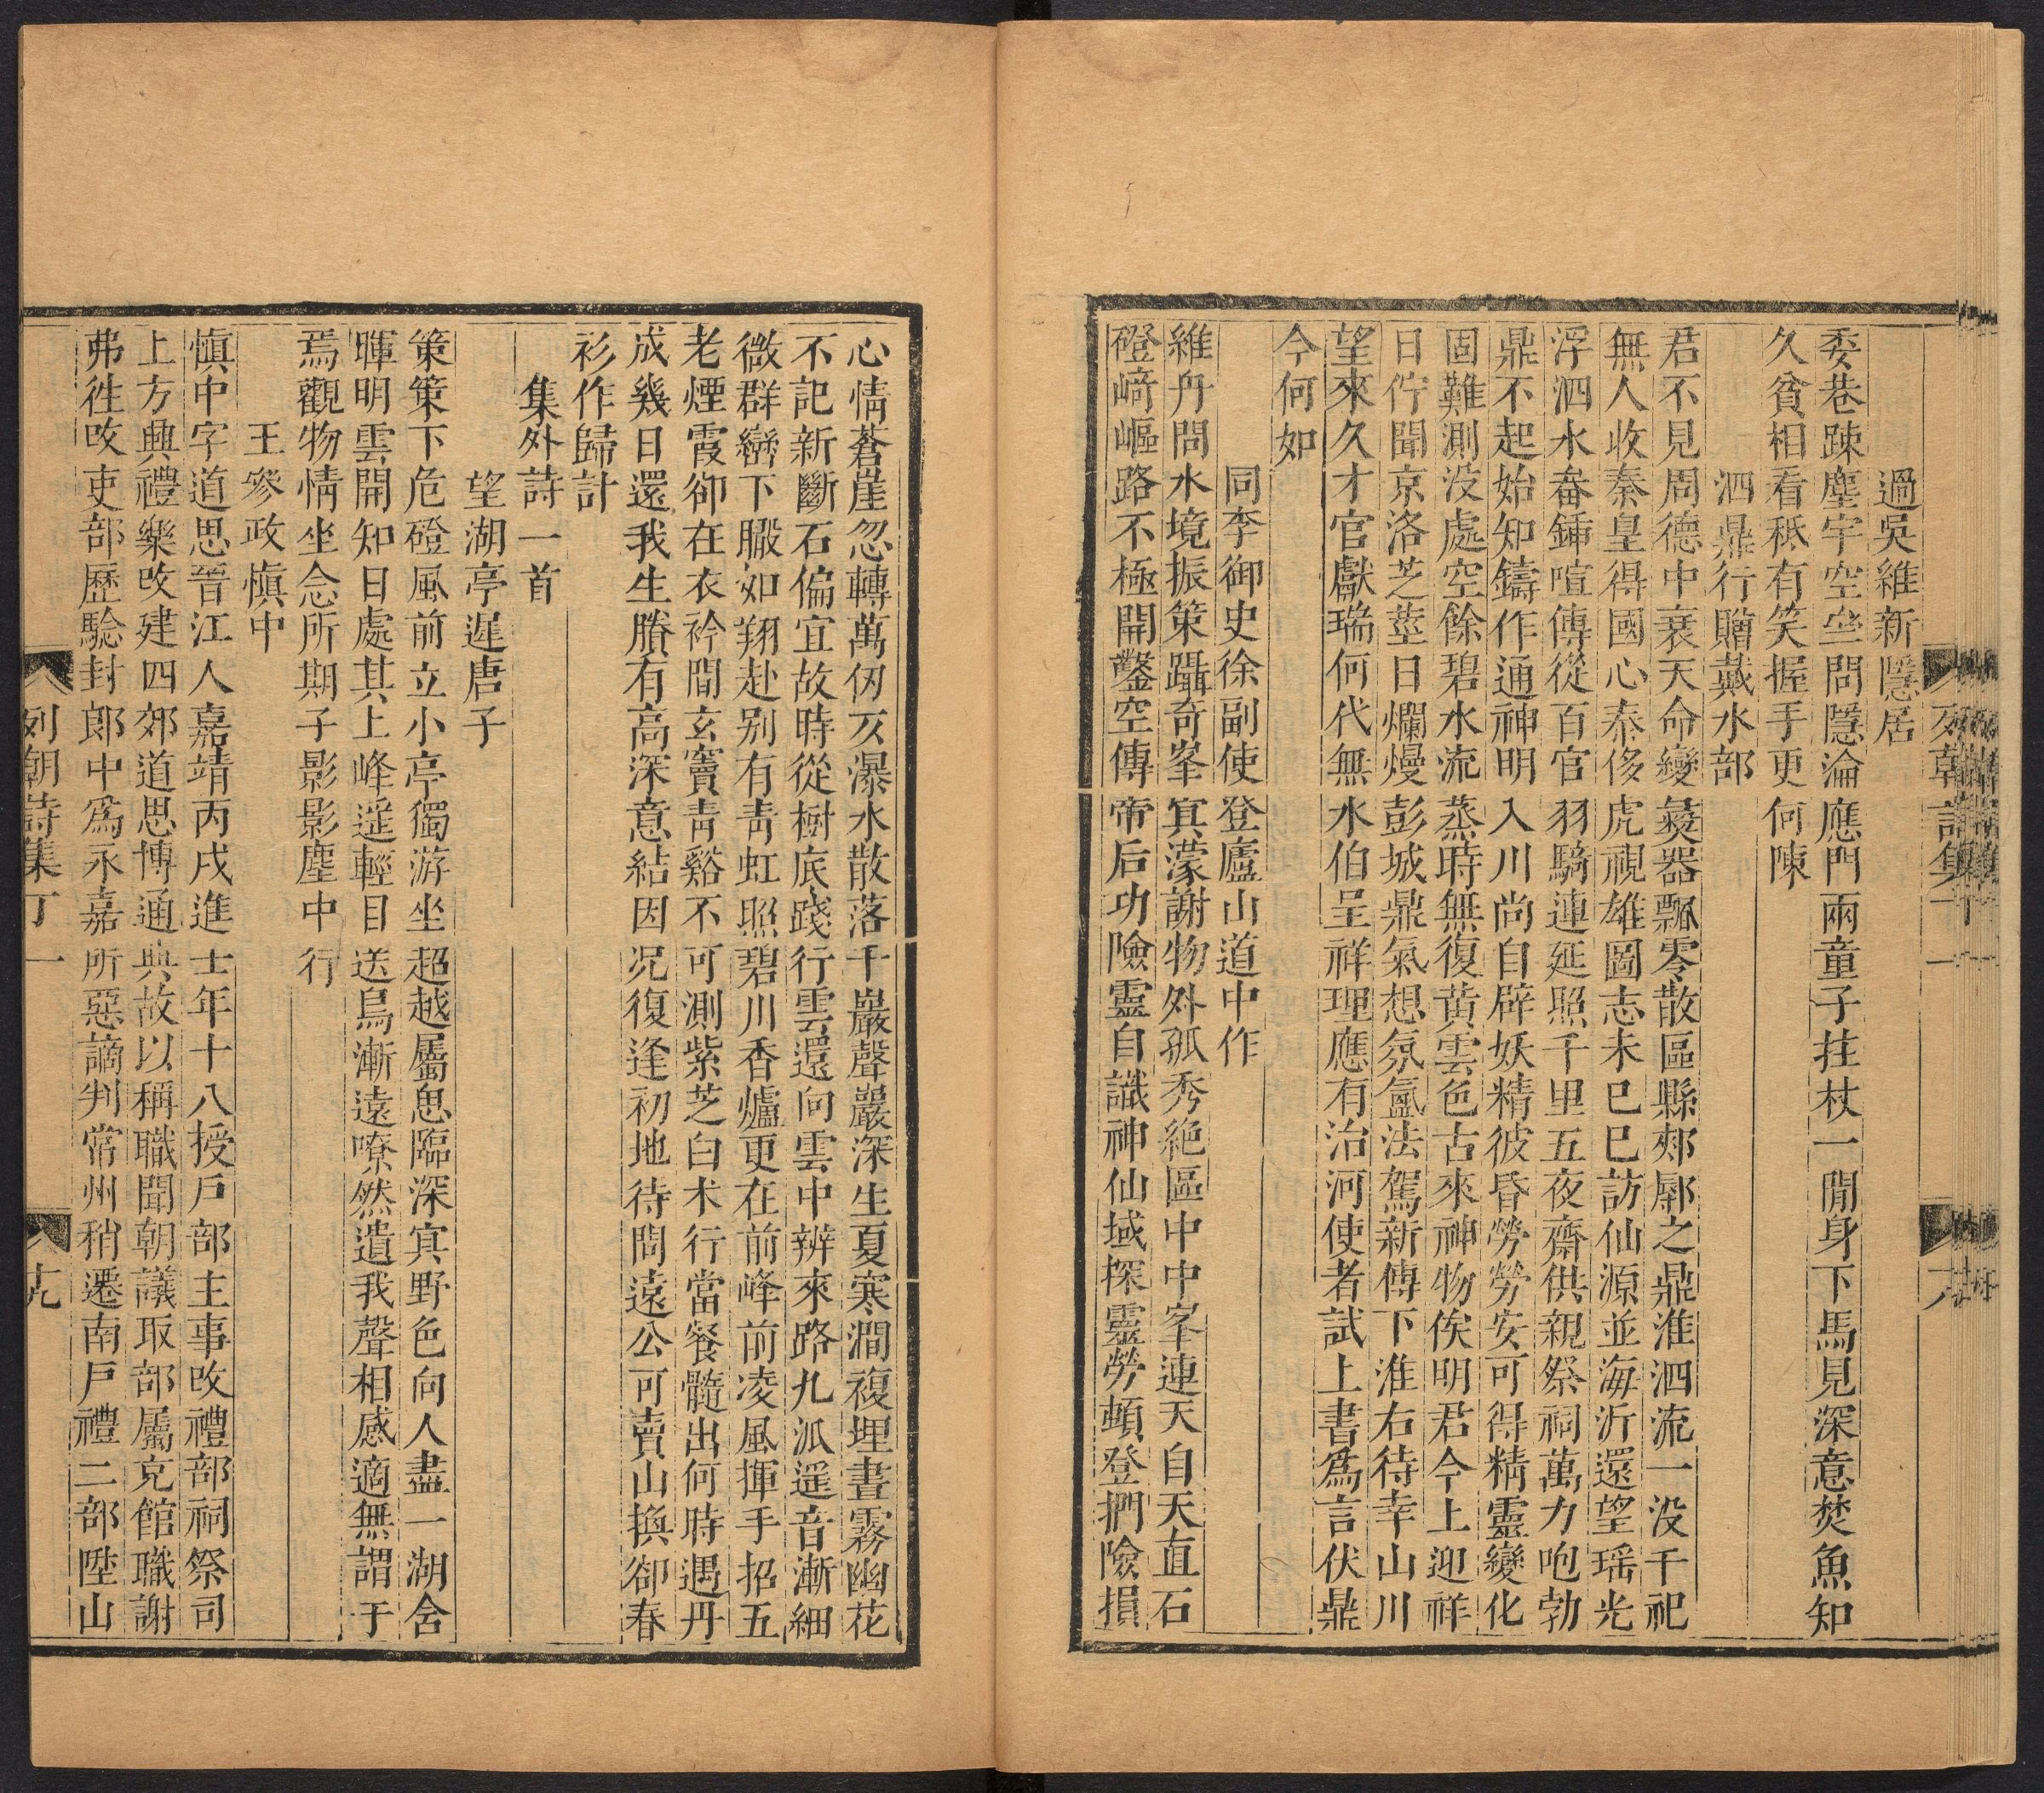 過吳維新隱居
委巷踈塵宇空坐問隱淪應門兩童子拄杖一閒身下馬見深意焚魚知
久貧相看秪有笑握手更何陳
泗鼎行贈戴水部
君不見周德中衰天命變彝器飄零散區縣郟鄏之鼎淮泗流一没千祀
無人收秦皇得國心泰侈虎視雄圖志未巳巳訪仙源並海沂還望瑶光
浮泗水畚鍤喧傳從百官羽騎連延照千里五夜齋供親祭祠萬力咆勃
鼎不起始知鑄作通神明入川尚自辟妖精彼昏勞勞安可得精靈變化
固難測没處空餘碧水流蒸時無復黄雲色古來神物俟明君今上迎祥
日佇聞京洛芝莖日爛熳彭城鼎氣想氛氳法駕新傳下淮右待幸山川
望來久才官獻瑞何代無水伯呈祥理應有治河使者試上書爲言伏鼎
今何如
同李御史徐副使登廬山道中作
維舟問水境振策躡奇峯冥濛謝物外孤秀絶區中中峯連天自天直石
磴﨑嶇路不極開鑿空傳帝后功險靈自識神仙域探靈勞頓登捫險損
列朝詩集丁一
心情蒼崖忽轉萬仞亥瀑水散落千巖聲巖深生夏寒澗複埋晝霧幽花
不記新斷石偏宜故時從樹底踐行雲還向雲中辨來路九派遥音漸細
微群巒下瞰如翔赴别有靑虹照碧川香爐更在前峰前凌風揮手招五
老煙霞卻在衣衿間玄竇靑谿不可測紫芝白术行當餐髓出何時遇丹
成幾日還我生賸有高深意結因况復逢初地待問遠公可賣山換卻春
衫作歸計
集外詩一首
望湖亭遲唐子
策策下危磴風前立小亭獨游坐超越屬思臨深冥野色向人盡一湖舍
暉明雲開知日處其上峰遥輕目送鳥漸遠嘹然遺我聲相感適無謂于
焉觀物情坐念所期子影影塵中行
王參政愼中
愼中字道思晉江人嘉靖丙戌進士年十八授戶部主事改禮部祠祭司
上方典禮樂改建四郊道思博通典故以稱職聞朝議取部屬充館職謝
弗徃改吏部歷騐封郎中爲永嘉所惡謫判常州稍遷南戶禮二部陞山
列朝詩集丁一 十九